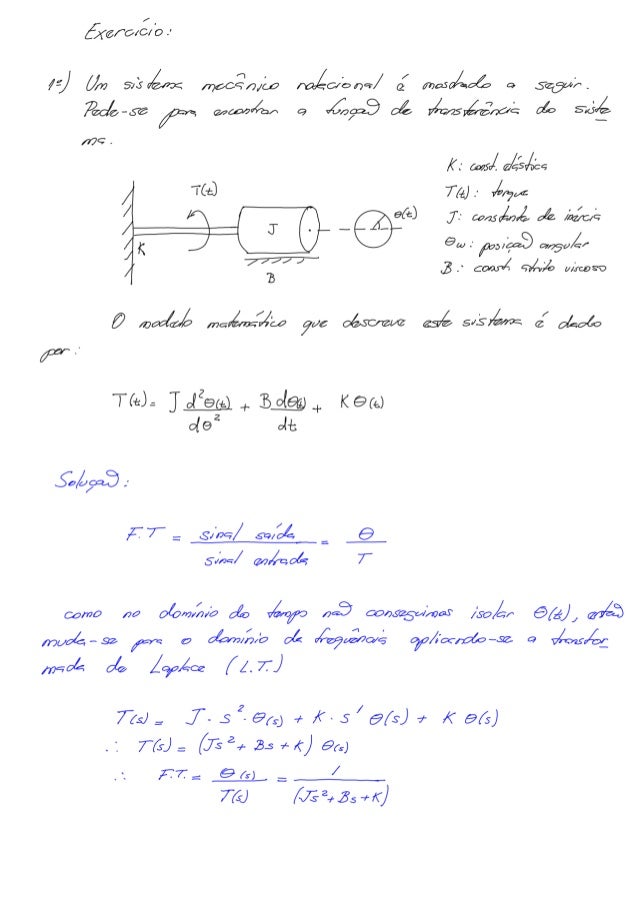 Exercício:
1º) Um sistema mecânico rotacional é mostrado a seguir.
Pede-se para encontrar a função de transferência do siste
ma.
K: const. elástica
T(t): torque
J: constante de inércia
θω: posição angular
B: const. atrito viscoso
T(t)
J
θ(t)
K
B
O modelo matemático que descreve este sistema é dado
por:
T(t) = J d²θ(t)/dθ² + B dθ(t)/dt + K θ(t)
Solução:
F.T = sinal saída / sinal entrada = θ / T
como no domínio do tempo não conseguimos isolar θ(t), então
muda-se para o domínio da frequência aplicando-se a transfor
mada de Laplace (L.T.)
T(s) = J · s² · θ(s) + K · s¹ θ(s) + K θ(s)
∴ T(s) = (Js² + Bs + K) θ(s)
∴ F.T. = θ(s) / T(s) = 1 / (Js² + Bs + K)